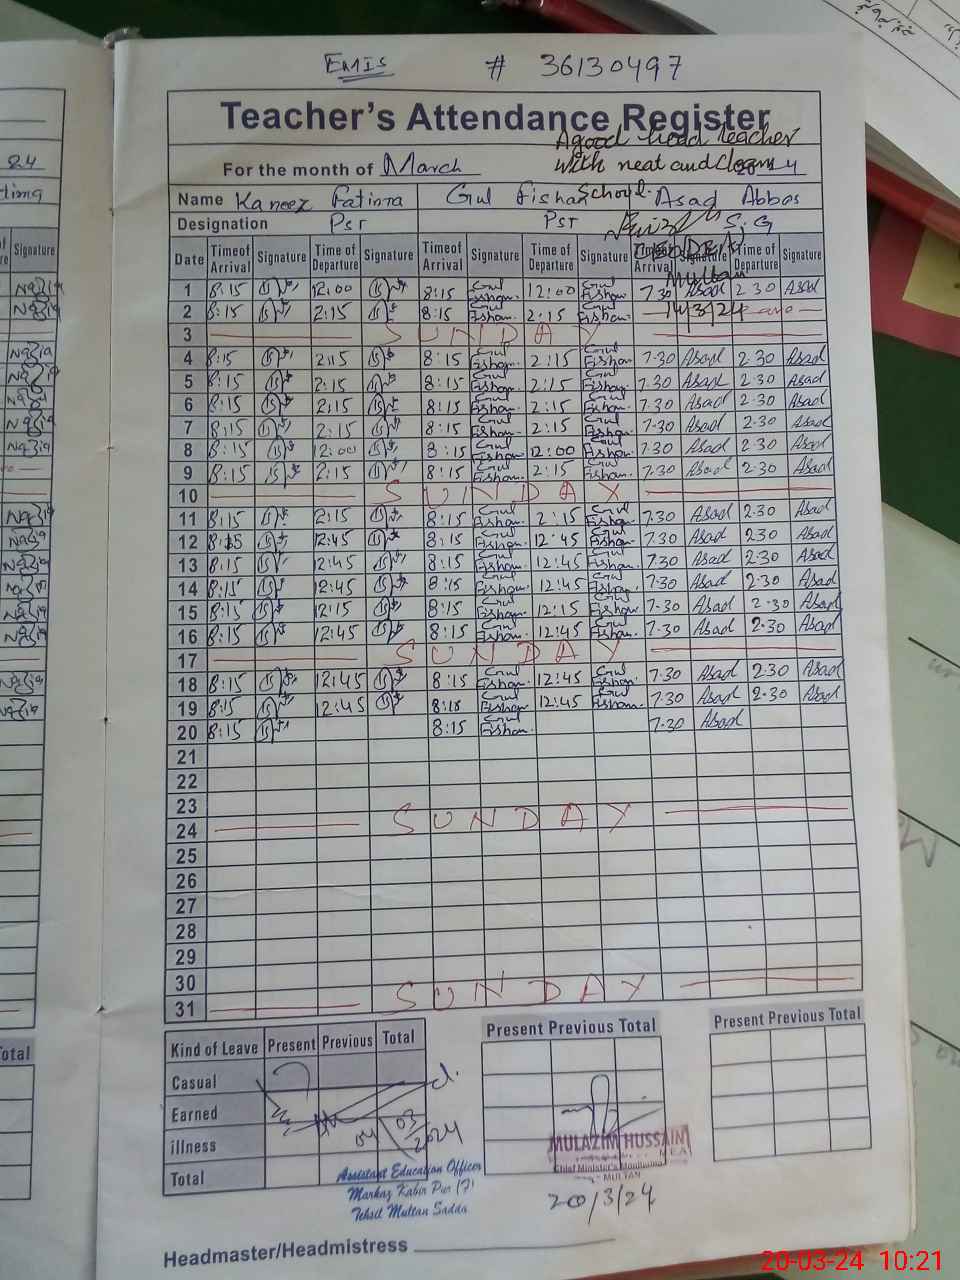 EMIS # 36130497
Teacher's Attendance Register
A good head teacher
For the month of March 2024
with neat and clean
School.
Name Kaneez Fatima Gul Fishan Asad Abbas
Designation PST PST S.G
Multan
14/3/24
Date Time of Arrival Signature Time of Departure Signature Time of Arrival Signature Time of Departure Signature Time of Arrival Signature Time of Departure Signature
1 8:15 12:00 8:15 Gul Fishan 12:00 Gul Fishan 7.30 Asad 2 30 Asad
2 8:15 2:15 8:15 Gul Fishan 2:15 Gul Fishan
3 SUNDAY
4 8:15 2:15 8:15 Gul Fishan 2:15 Gul Fishan 7.30 Asad 2.30 Asad
5 8:15 2:15 8:15 Gul Fishan 2:15 Gul Fishan 7.30 Asad 2.30 Asad
6 8:15 2:15 8:15 Gul Fishan 2:15 Gul Fishan 7.30 Asad 2.30 Asad
7 8:15 2:15 8:15 Gul Fishan 2:15 Gul Fishan 7.30 Asad 2.30 Asad
8 8:15 12:00 8:15 Gul Fishan 12:00 Gul Fishan 7.30 Asad 2.30 Asad
9 8:15 2:15 8:15 Gul Fishan 2:15 Gul Fishan 7.30 Asad 2.30 Asad
10 SUNDAY
11 8:15 2:15 8:15 Gul Fishan 2:15 Gul Fishan 7.30 Asad 2.30 Asad
12 8:15 12:45 8:15 Gul Fishan 12:45 Gul Fishan 7.30 Asad 2.30 Asad
13 8:15 12:45 8:15 Gul Fishan 12:45 Gul Fishan 7.30 Asad 2.30 Asad
14 8:15 12:45 8:15 Gul Fishan 12:45 Gul Fishan 7.30 Asad 2.30 Asad
15 8:15 12:15 8:15 Gul Fishan 12:15 Gul Fishan 7.30 Asad 2.30 Asad
16 8:15 12:45 8:15 Gul Fishan 12:45 Gul Fishan 7.30 Asad 2.30 Asad
17 SUNDAY
18 8:15 12:45 8:15 Gul Fishan 12:45 Gul Fishan 7.30 Asad 2.30 Asad
19 8:15 12:45 8:15 Gul Fishan 12:45 Gul Fishan 7.30 Asad 2.30 Asad
20 8:15 8:15 Gul Fishan 7.30 Asad
21
22
23
24 SUNDAY
25
26
27
28
29
30
31 SUNDAY
Kind of Leave Present Previous Total Present Previous Total Present Previous Total
Casual
Earned
illness
Total
04/03/2024
Assistant Education Officer
Markaz Kabir Pur (F)
Tehsil Multan Sadda
MULAZIM HUSSAIN
MEA
Chief Minister's Monitoring
MULTAN
20/3/24
Headmaster/Headmistress
20-03-24 10:21